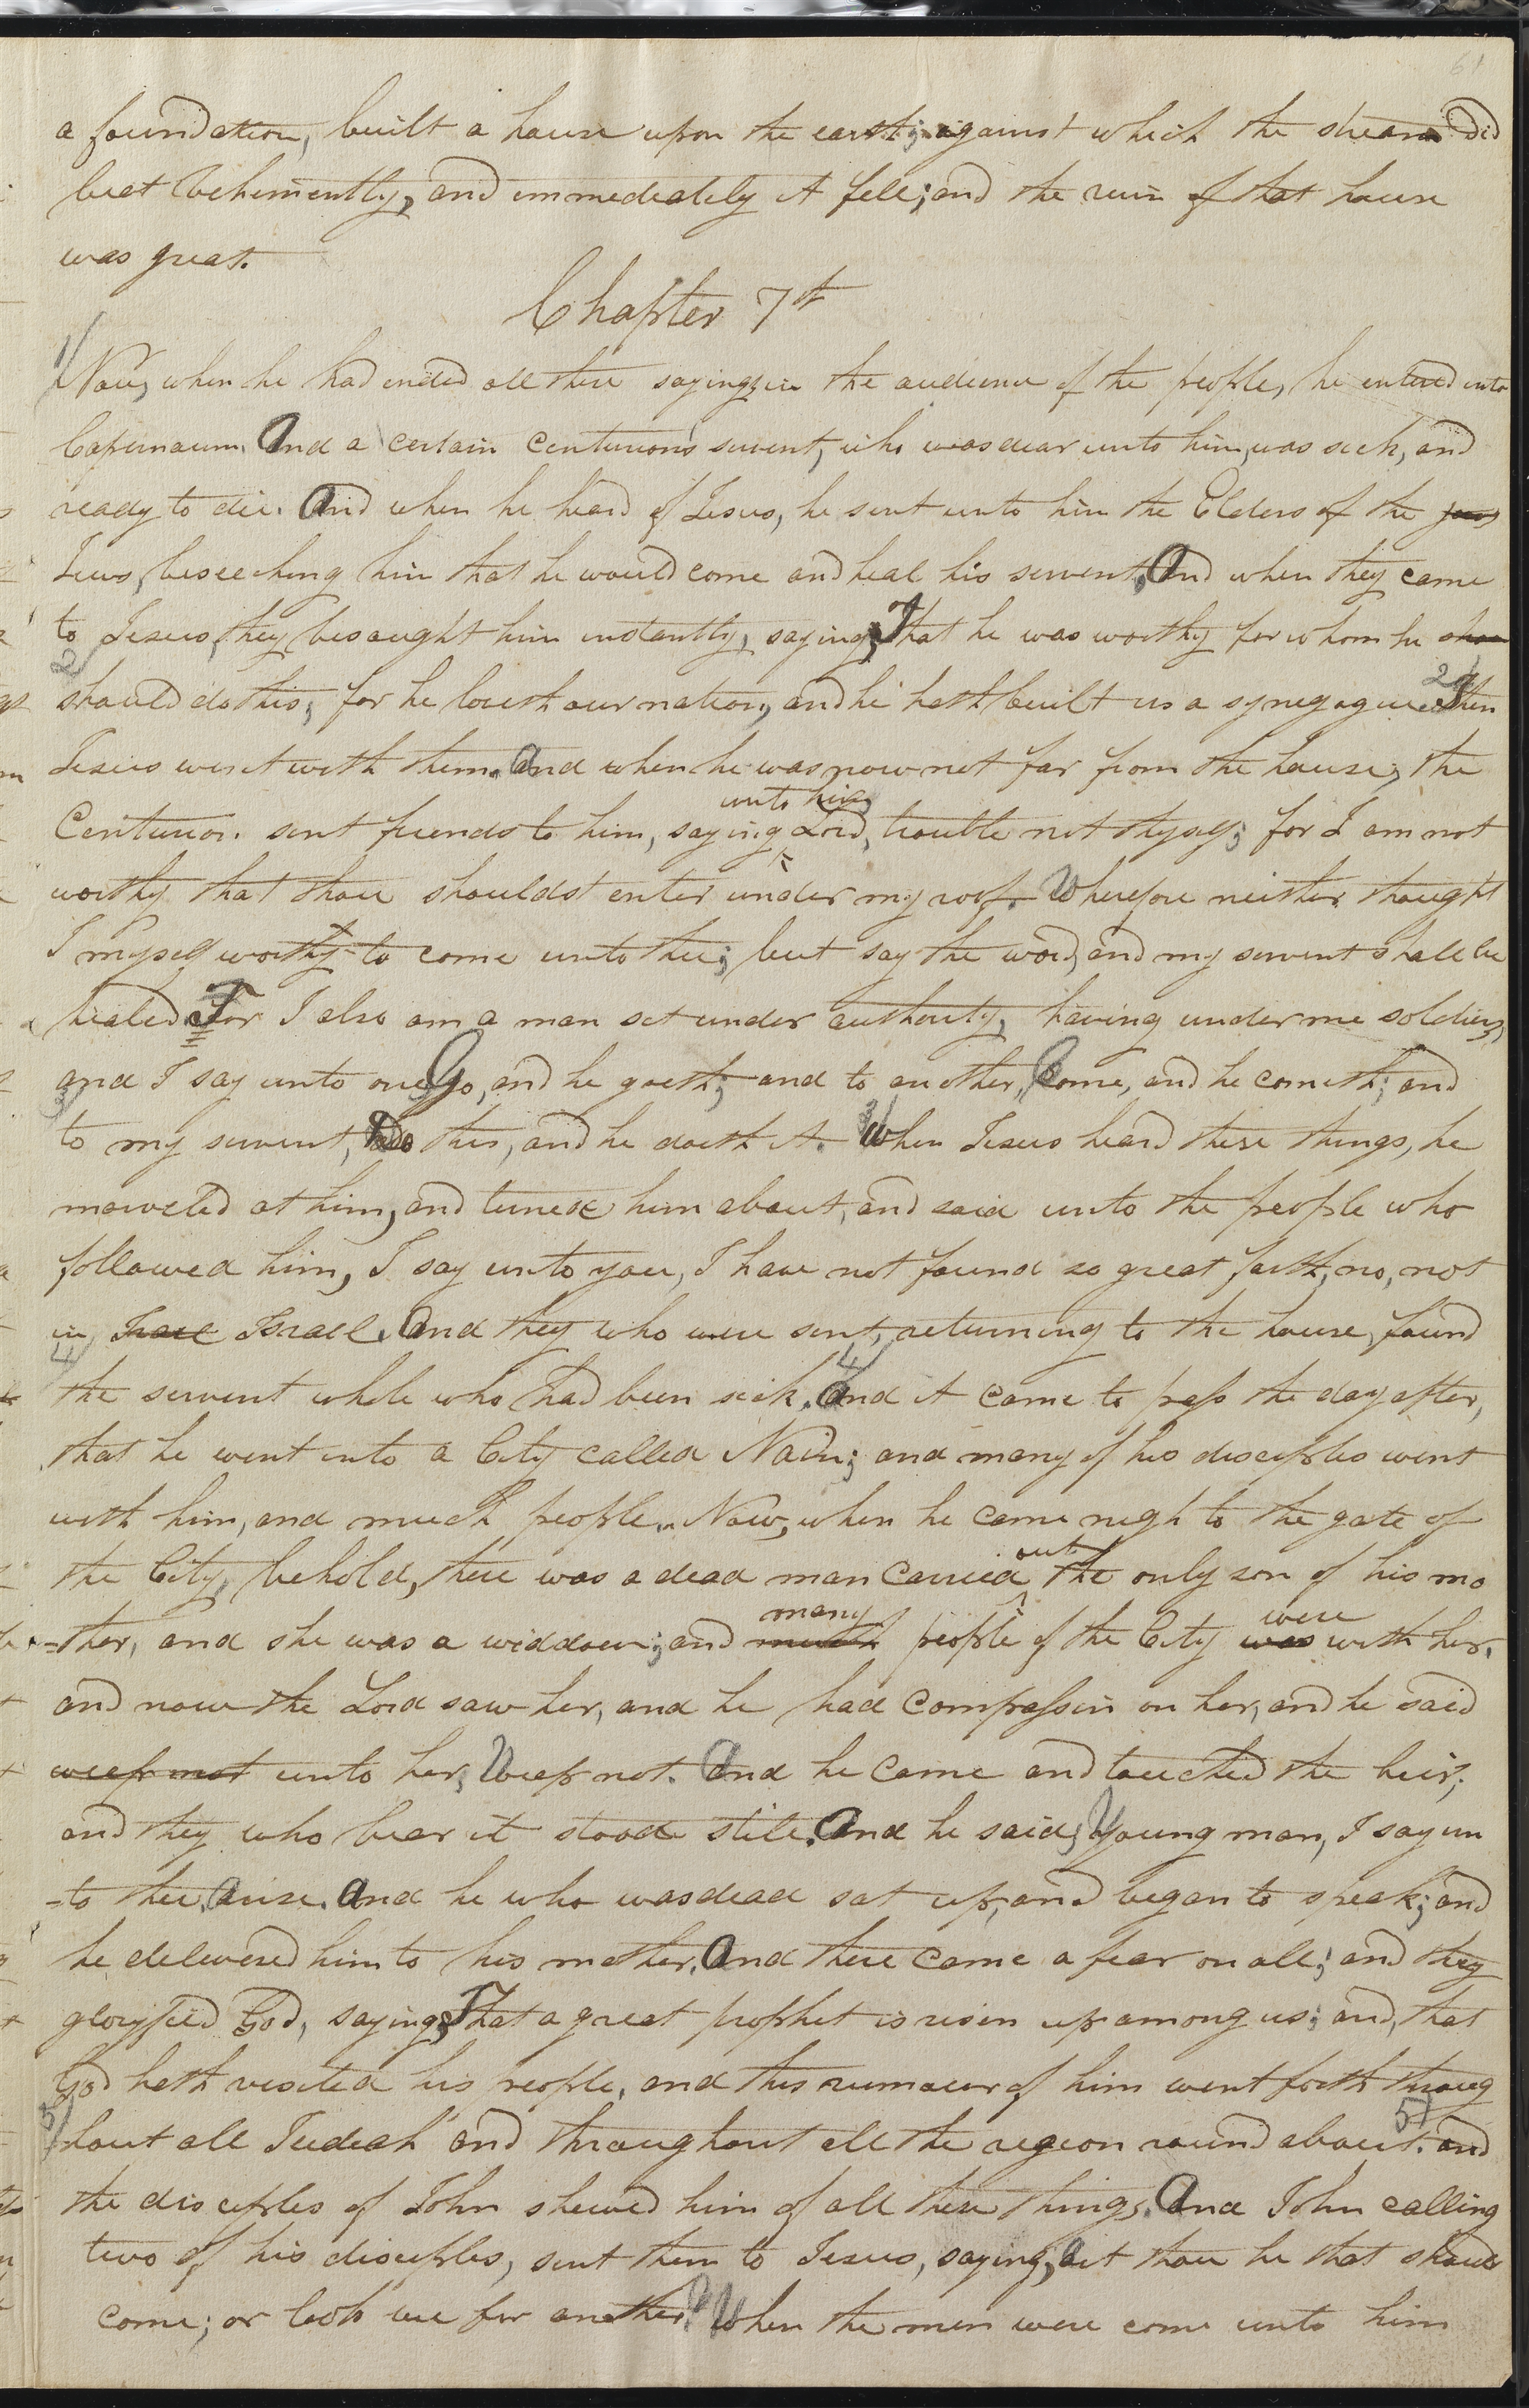 61
a foundation, built a house upon the earth; against which the stream did
beat vehemently, and immediately it fell; and the ruin of that house
was great.
Chapter 7th
1/ Now, when he had ended all these sayings in the audience of the people, he entered into
Capernaum. And a certain centurion's servent, who was dear unto him, was sick, and
ready to die. And when he heard of Jesus, he sent unto him the Elders of the jews
Jews, beseeching him that he would come and heal his servent. And when they came
to Jesus, they besaught him instantly, saying, That he was worthy for whom he shou
2/ should do this; for he loveth our nation, and he hath built us a synegogue. 2/ Then
Jesus went with them. And when he was now not far from the house, the
unto him
Centurion sent friends to him, saying Lord, trouble not thyself; for I am not
worthy that thou shouldst enter under my roof. Wherefore neither thought
I myself worthy to come unto thee; but say the word, and my servent shall be
healed. For I also am a man set under authority, having under me soldiers,
and I say unto one, Go, and he goeth; and to another, Come, and he cometh; and
3/ to my servent, Do this, and he doeth it. 3/ When Jesus heard these things, he
marveled at him, and turned him about, and said unto the people who
followed him, I say unto you, I have not found so great faith, no, not
in Irael Israel. And they who were sent, returning to the house, found
4/ the servent whole who had been sick. 4/ And it came to pass the day after,
that he went into a City called Nain; and many of his disciples went
with him, and much people. Now, when he came nigh to the gate of
out
the City, behold, there was a dead man carried the only son of his mo
many were
-ther, and she was a widdow; and much people of the City was with her.
and now the Lord saw her, and he had compassion on her, and he said
weep not unto her, Weep not. And he came and touched the bier;
and they who bear it stood still. And he said, Young man, I say un
-to thee, arise. And he who was dead sat up, and began to speak; and
he delivered him to his mother. And there came a fear on all; and they
gloryfied God, saying, That a great prophet is risen up among us; and, that
God hath visited his people. and this rumour of him went forth throug
5/ hout all Judeah and throughout all the region round about. 5/ and
the disciples of John shewed him of all these things. And John calling
two of his disciples, sent them to Jesus, saying, art thou he that should
come; or look we for another? When the men were come unto him